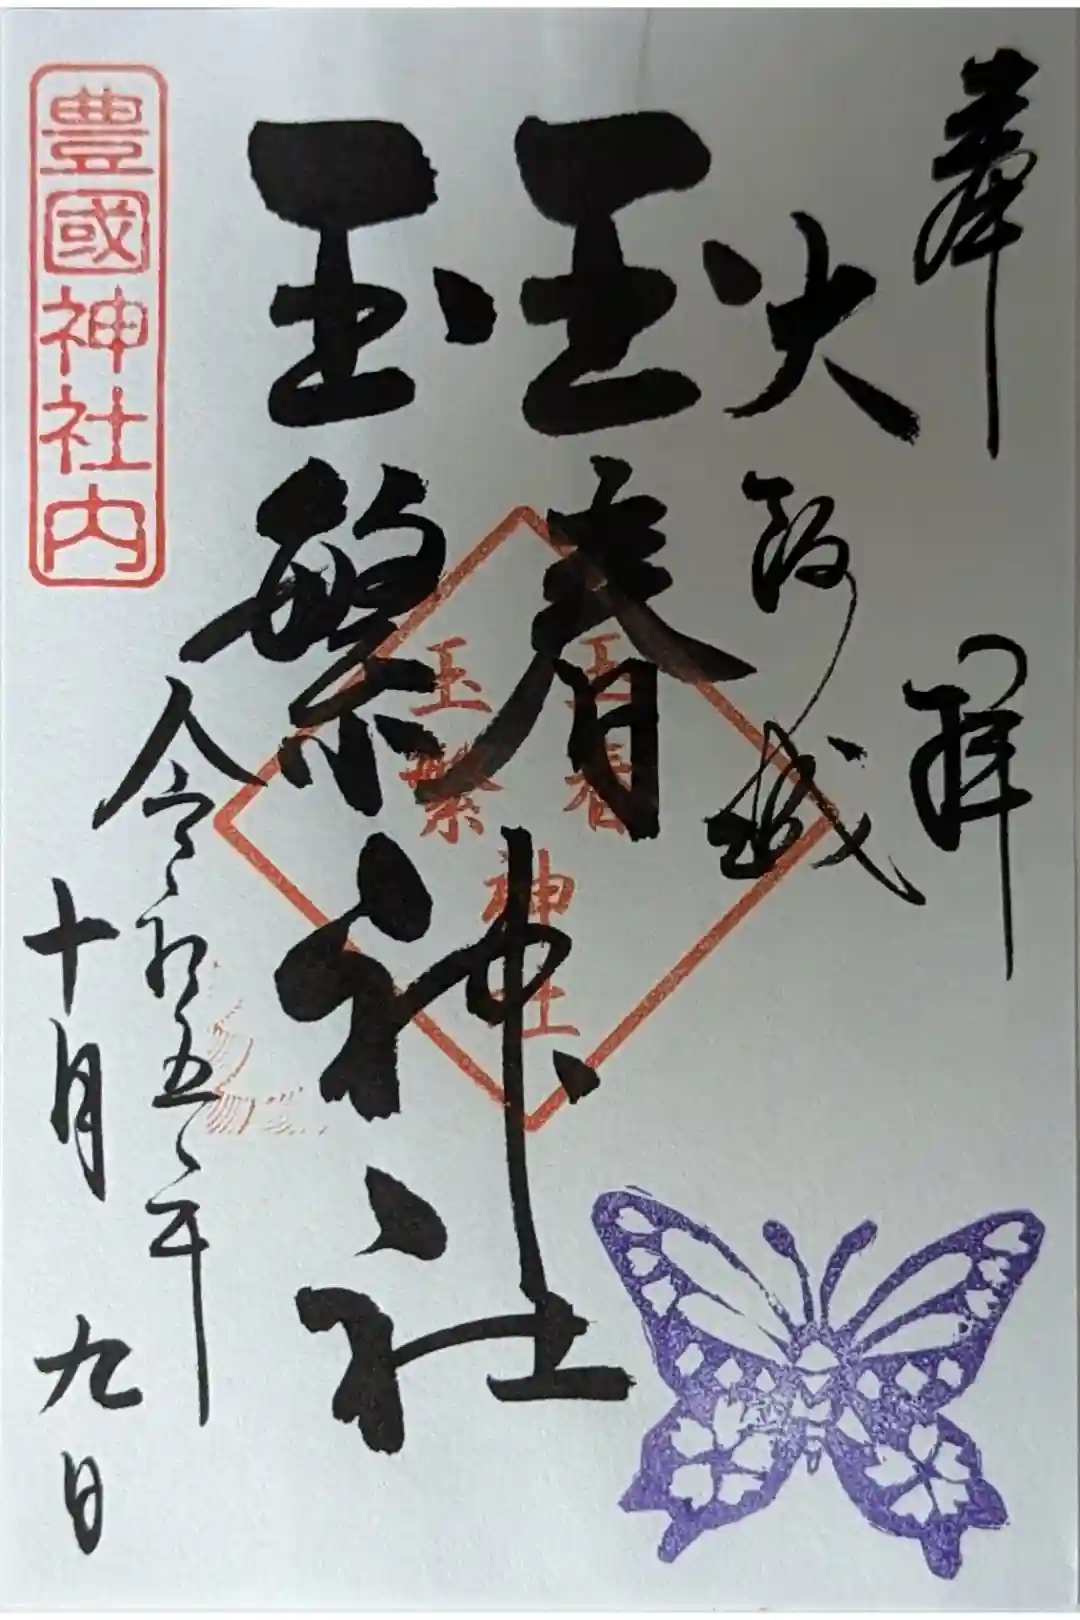 奉拝
大阪城
玉春
玉繁
神社
玉春
玉繁
神社
令和五年
十月九日
豊國神社内